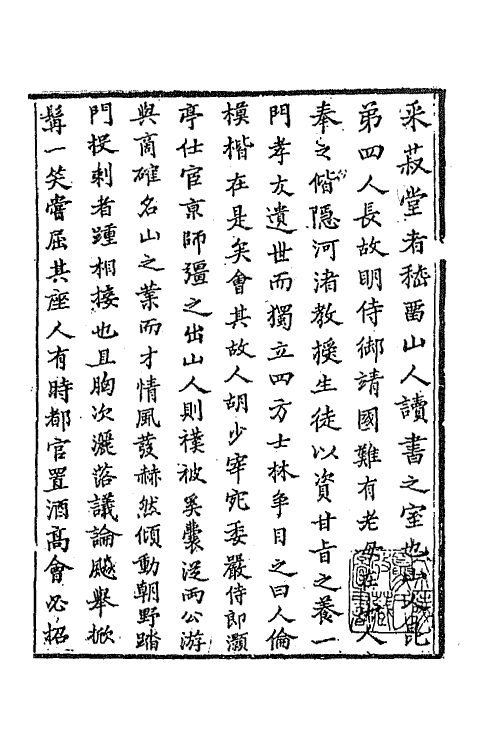 采菽堂者嵇留山人讀書之室也山人昆
弟四人長故明侍御靖國難有老母在山人
奉之偕隱河渚教授生徒以資甘旨之養一
門孝友遺世而獨立四方士林争目之曰人倫
模楷在是矣會其故人胡少宰宛委嚴侍郎灝
亭仕宦京師彊之出山人則襆被奚囊從兩公游
與商確名山之業而才情風發赫然傾動朝野踏
門投刺者踵相接也且胸次灑落議論飈舉掀
髯一笑嘗屈其座人有時都官置酒高會必招